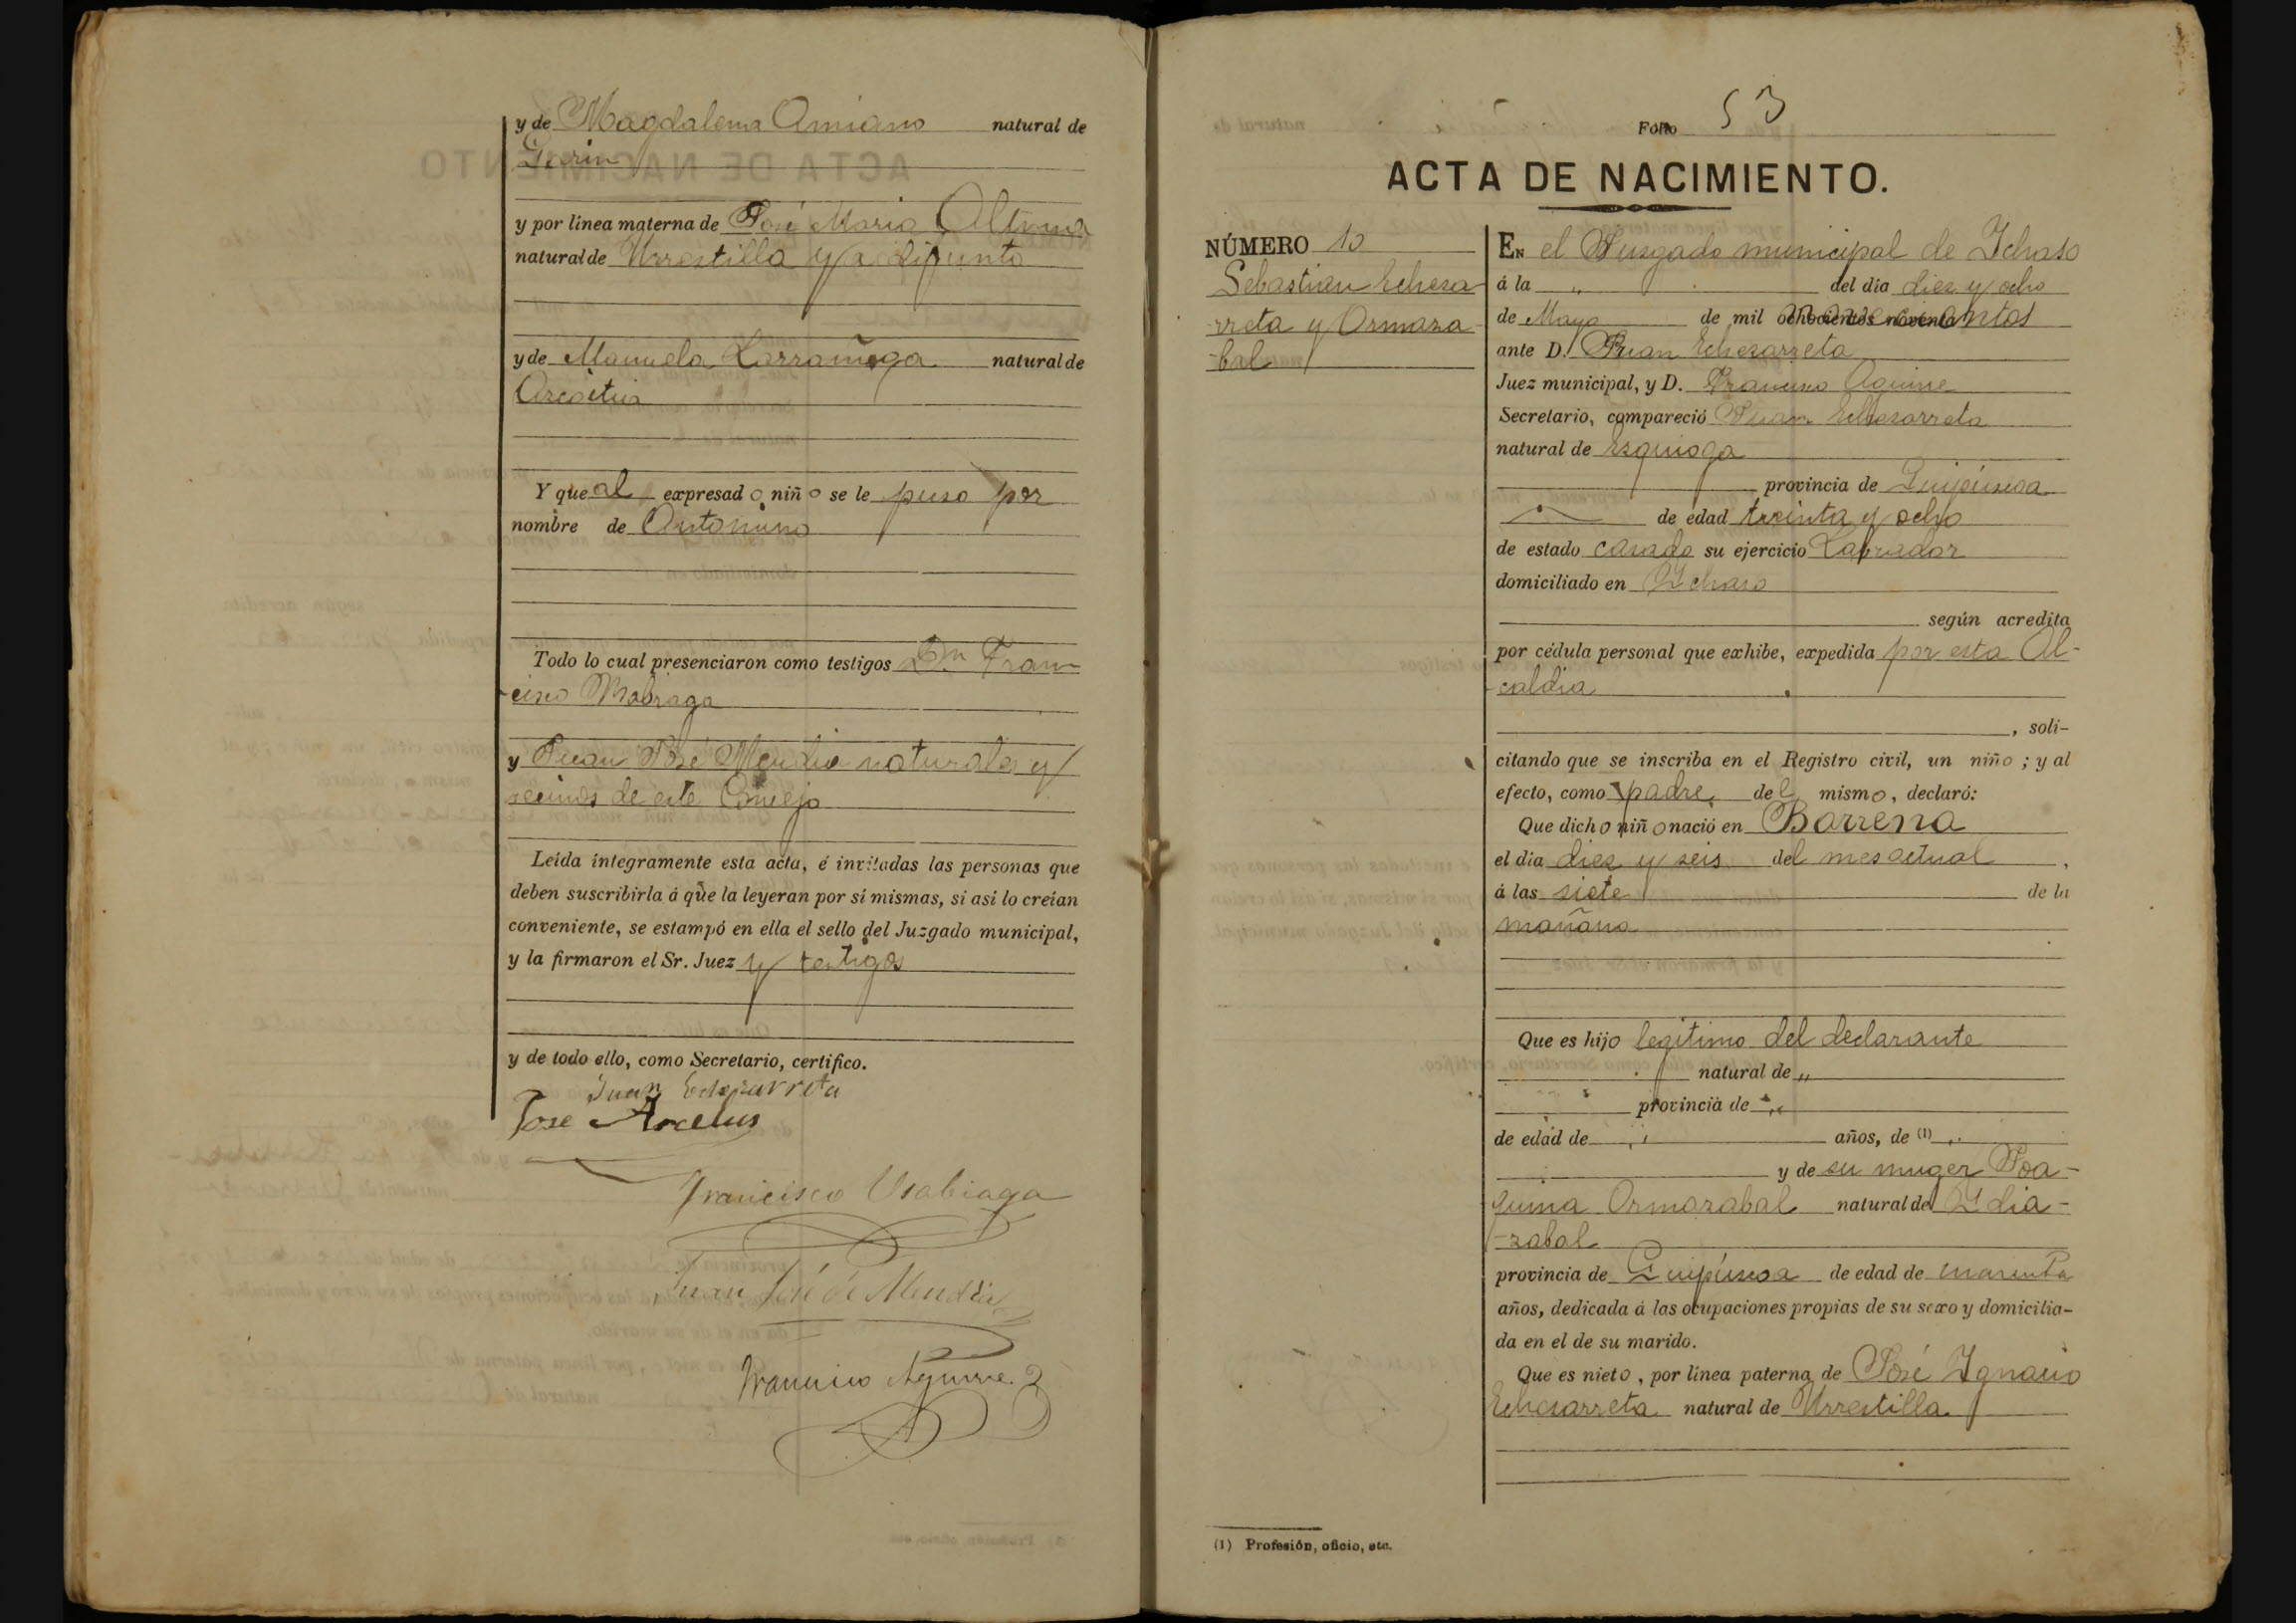 y de Magdalena Amiano natural de
Gavin
y por línea materna de José Maria Altuna
natural de Urrestilla ya difunto
y de Manuela Larrañaga natural de
Azcoitia
Y que al expresado niño se le puso por
nombre de Antonino
Todo lo cual presenciaron como testigos Dn Fran
cisco Usabiaga
y Juan José Mendia naturales y
vecinos de este Concejo
Leída íntegramente esta acta, é invitadas las personas que
deben suscribirla á que la leyeran por sí mismas, si así lo creían
conveniente, se estampó en ella el sello del Juzgado municipal,
y la firmaron el Sr. Juez y testigos
y de todo ello, como Secretario, certifico.
Juan Echezarreta
Jose Arcelus
Francisco Usabiaga
Juan José de Mendia
Francisco Aguirre
Folio 53
ACTA DE NACIMIENTO.
NÚMERO 10
Sebastian Echeza
-rreta y Ormaza
-bal
EN el Juzgado municipal de Ichaso
á la „ del dia diez y ocho
de Mayo de mil ochocientos noventa novecientos
ante D. Juan Echezarreta
Juez municipal, y D. Francisco Aguirre
Secretario, compareció Juan Echezarreta
natural de Ezquioga
provincia de Guipúzcoa
de edad treinta y ocho
de estado casado su ejercicio Labrador
domiciliado en Ichaso
según acredita
por cédula personal que exhibe, expedida por esta Al-
caldia
, soli-
citando que se inscriba en el Registro civil, un niño ; y al
efecto, como padre del mismo, declaró:
Que dicho niño nació en Barrena
el dia diez y seis del mes actual ,
á las siete de la
mañana
Que es hijo legitimo del declarante
natural de „
provincia de „
de edad de „ años, de (1) „
y de su muger Joa-
quina Ormazabal natural de Idia-
-zabal
provincia de Guipúzcoa de edad de cuarenta
años, dedicada á las ocupaciones propias de su sexo y domicilia-
da en el de su marido.
Que es nieto, por línea paterna de José Ignacio
Echezarreta natural de Urrestilla
(1) Profesión, oficio, etc.